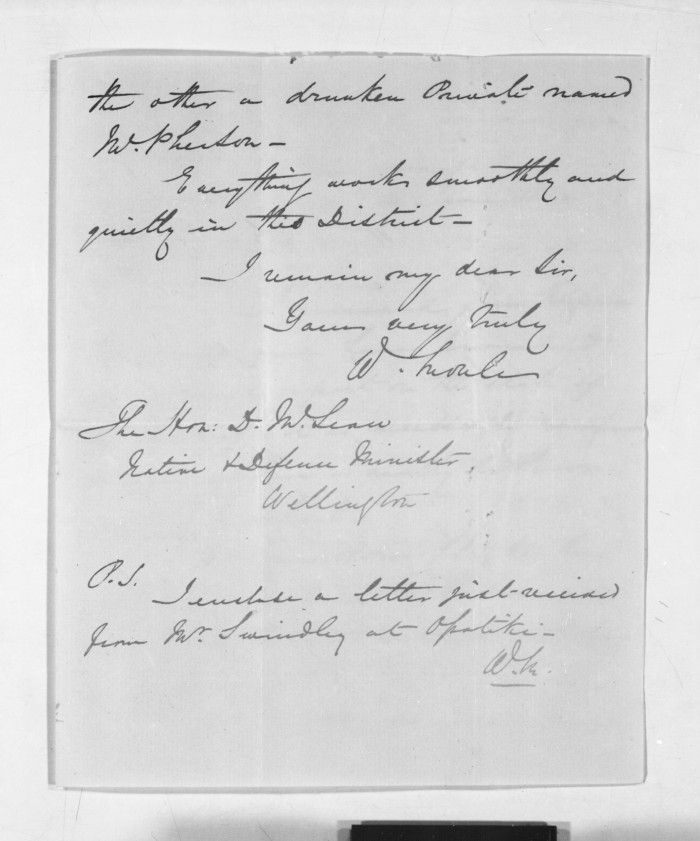 the other a drunken Private named
McPherson -
Everything works smoothly and
quietly in this District -
I remain my dear Sir,
Yours very truly
W. Moule
The Hon: D. McLean
Native & Defence Minister,
Wellington
P.S.
I enclose a letter just received
from Mr Swindley at Opotiki -
W.M.